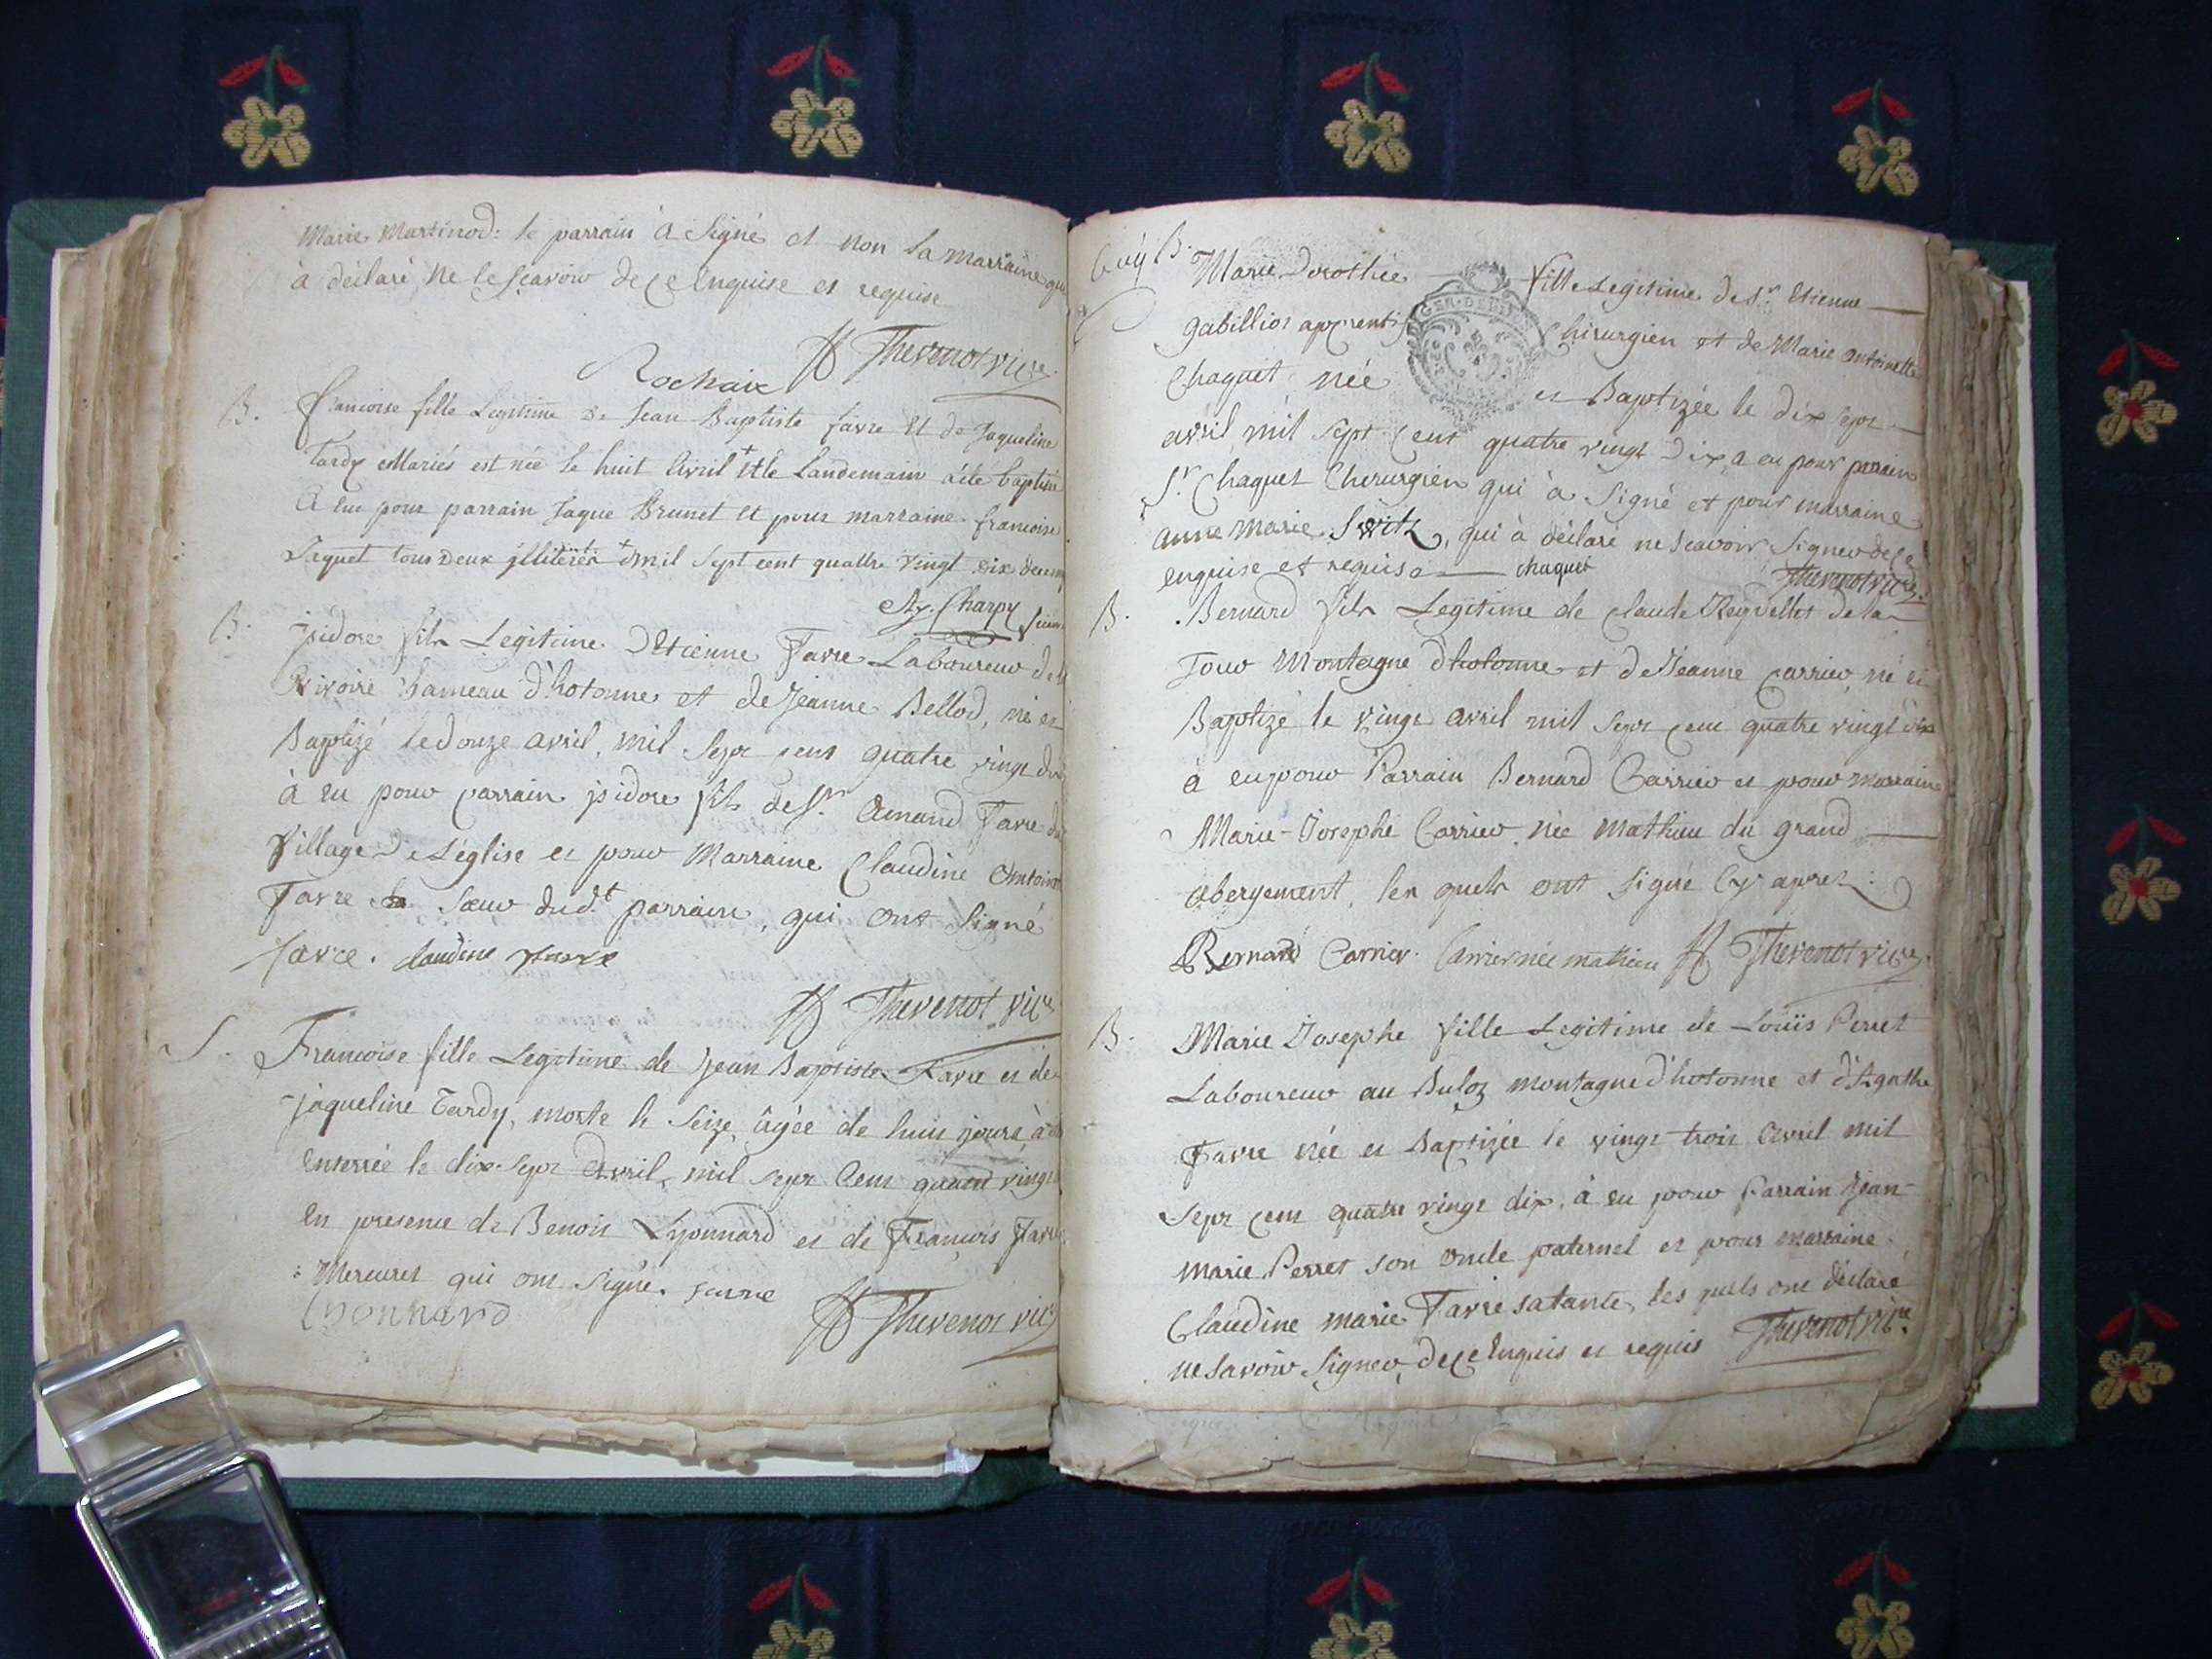 Marie Martinod: le parrain à Signé et non la marraine qui
à déclaré Ne le sçavoir de ce Enquise et requise
Rochaix Thevenot vicre
B. francoise fille Legitime De Jean Baptiste favre Et de Jaqueline
Tardy Mariés est née le huit Avril + et le Landemain a été baptisée
A Eue pour parrain Jaque Brunet Et pour marraine francoise
Saquet tous Deux + mil Sept cent quattre vingt dix
Charpy
B. jsidore fils Legitime D'Etienne Favre Laboureur de
Rivoire hameau d'hotonne et de Jeanne Bellod, né et
Baptizé le douze avril, mil sept cent quatre vingt dix
à eu pour parrain jsidore fils de Sr. Amand Favre du
Village De L'église et pour Marraine Claudine Antoine
Favre Sœur dudt. parrain, qui ont Signé
favre. claudine favre
Thevenot vicre
S. Francoise fille Legitime de Jean Baptiste Favre et de
jaqueline Tardy, morte le Seize, âgée de huit jours, à été
Enterrée le dix-sept Avril, mil sept Cent quatre vingt
En presence de Benoit Lyonnard et de Francois Favre
Mercuret qui ont Signé. favre
Lyonnard Thevenot vicre
B. Marie Dorothée fille Legitime de Sr. Etienne
Gabillion apprentif Chirurgien et de Marie Antoinette
Chaquet née et Baptizée le dix sept
avril mil sept cent quatre vingt Dix, a eu pour parrain
Sr. Chaquet Chirurgien qui à Signé et pour marraine
anne Marie Switz, qui à déclaré ne Scavoir Signer de ce
enquise et requise chaquet Thevenot vicre.
B. Bernard fils Legitime de Claude Reydellet de la
Jour Montagne d'hotonne et de Jeanne Carrier né et
Baptizé le vingt avril mil sept cent quatre vingt dix
à eu pour Parrain Bernard Carrier et pour marraine
Marie-Josephe Carrier née Mathieu du grand
abergement, les quels ont Signé Cy apres:
Bernard Carrier. Carrier née mathieu Thevenot vicre.
B. Marie Josephe fille Legitime de Loüis Perret
Laboureur au Buloz montagne d'hotonne et d'Agathe
Favre née et Baptizée le vingt trois Avril mil
sept cent quatre vingt dix, à eu pour Parrain Jean-
marie Perret son oncle paternel et pour marraine
Claudine marie Favre satante, les quels ont déclaré
ne Savoir Signer, de ce Enquis et requis Thevenot vicre.